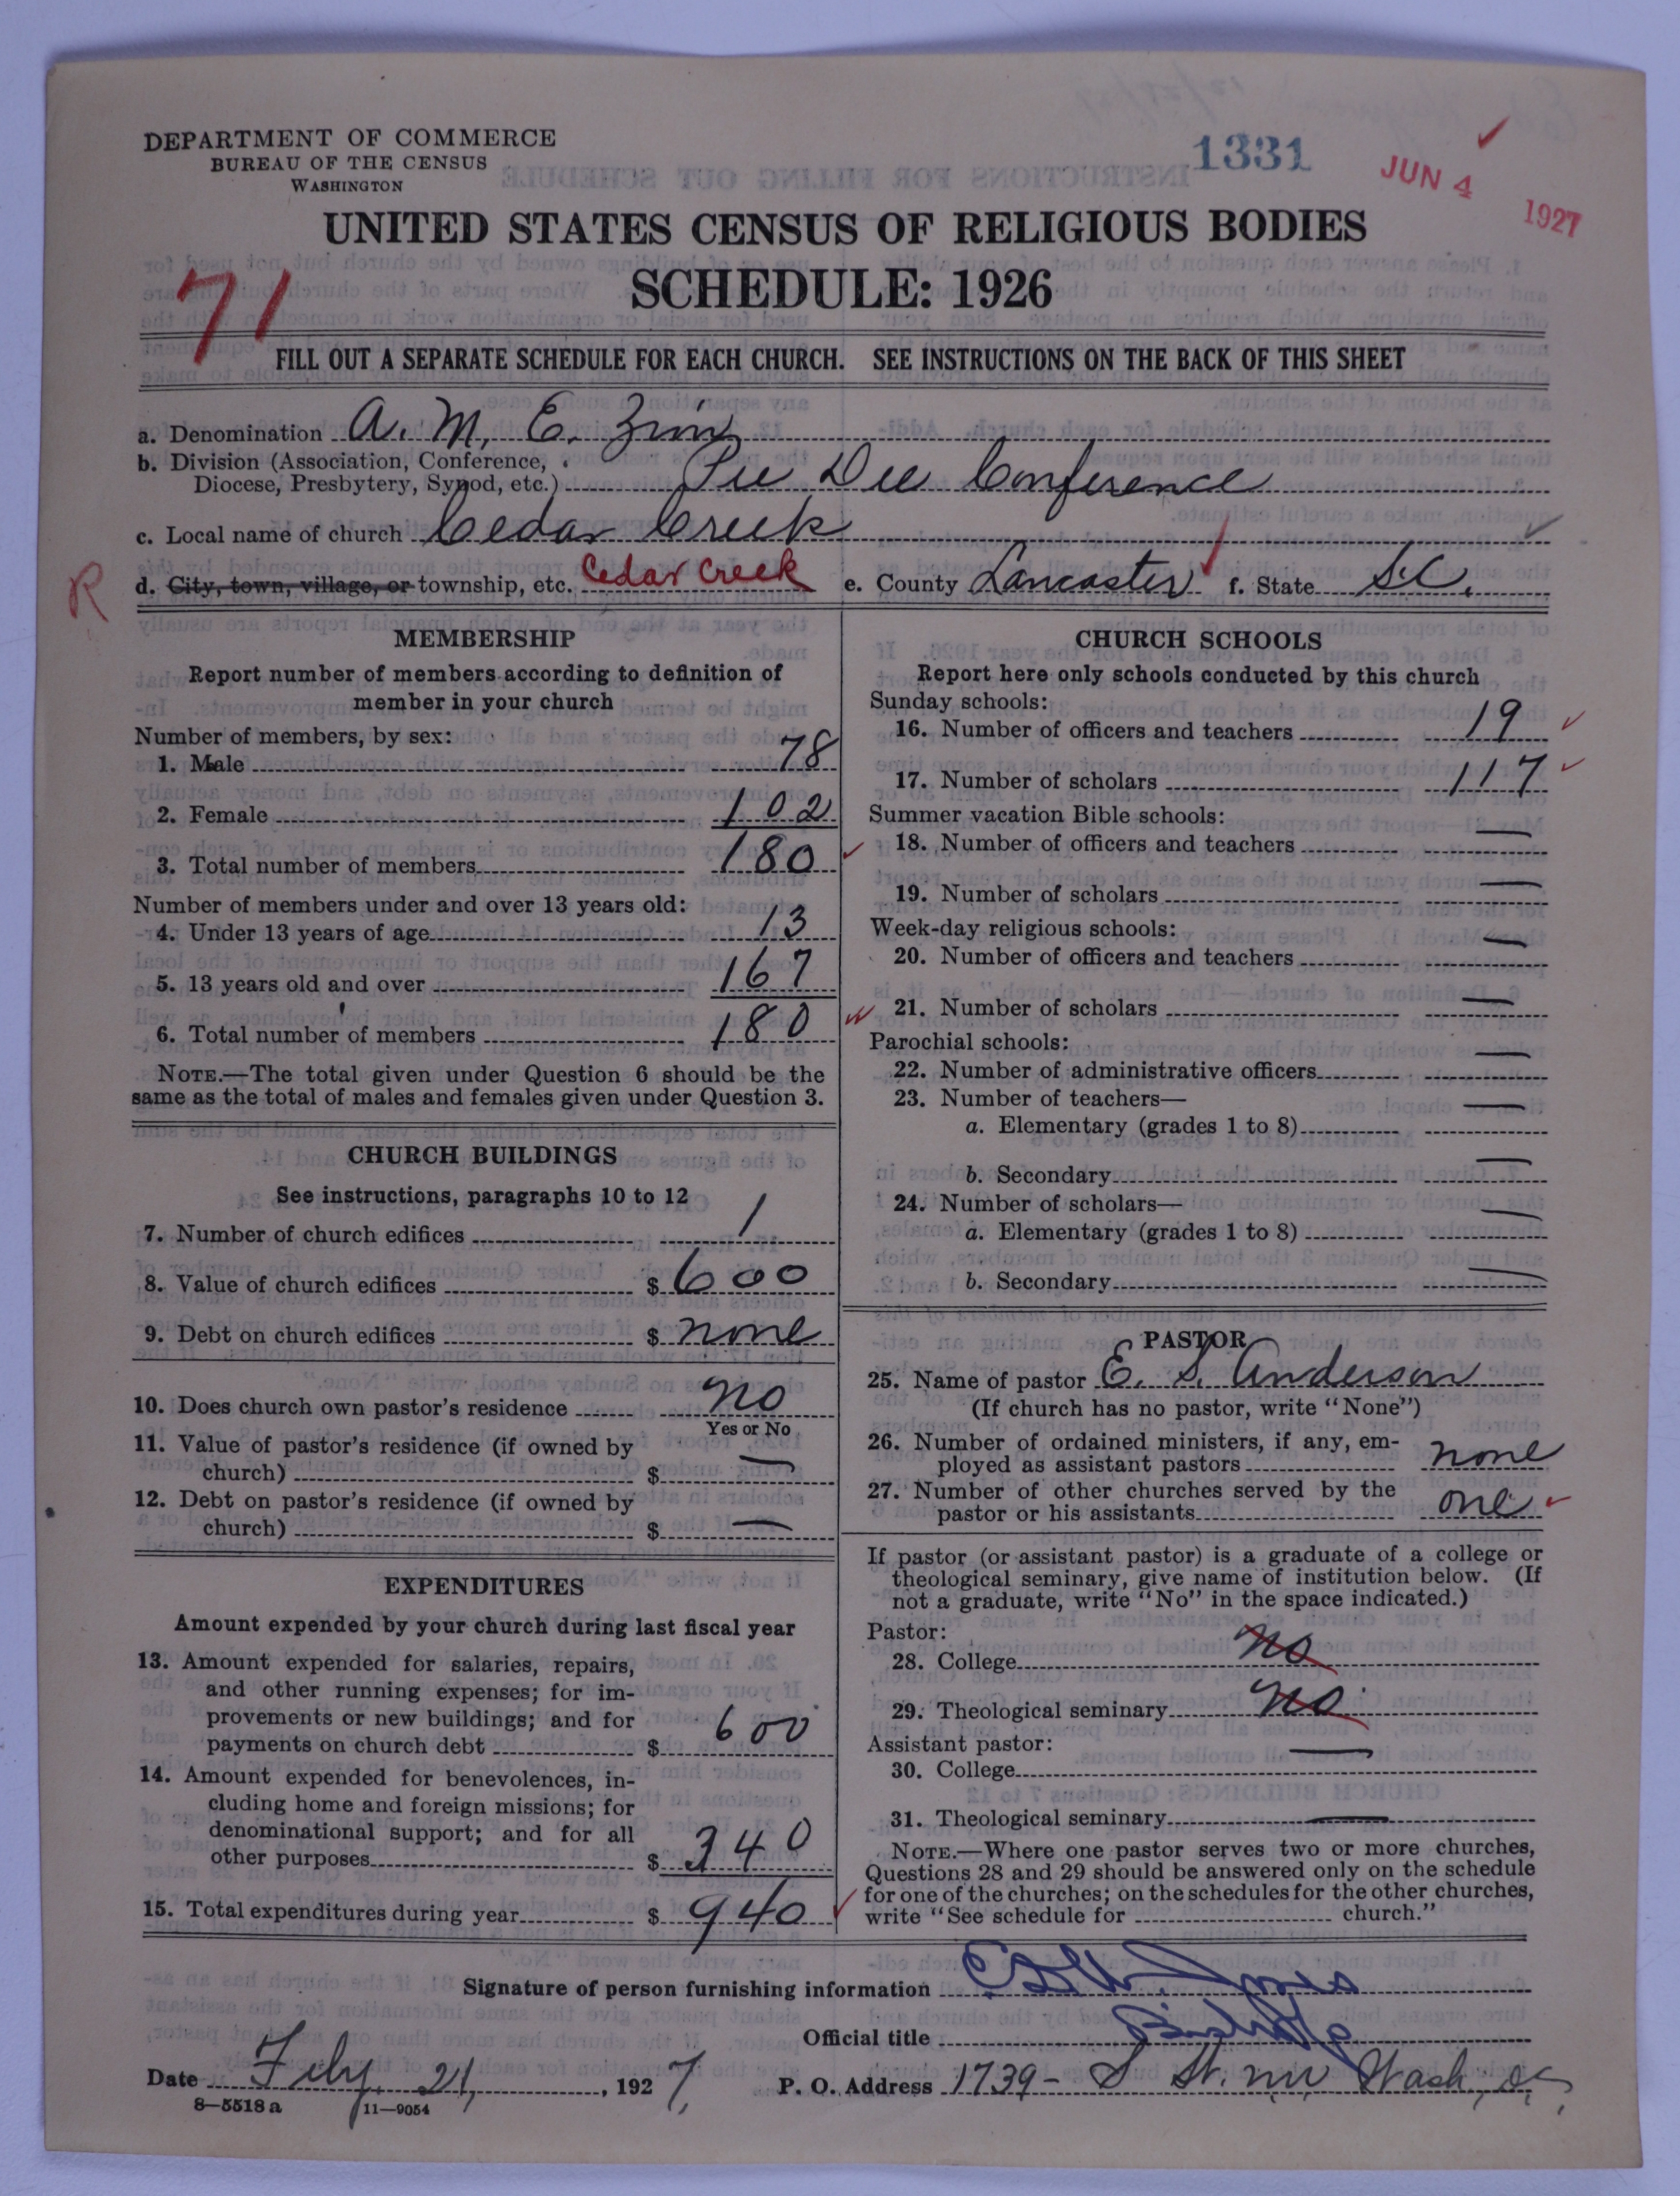 DEPARTMENT OF COMMERCE
BUREAU OF THE CENSUS
WASHINGTON
1331
JUN 4 1927
UNITED STATES CENSUS OF RELIGIOUS BODIES
SCHEDULE: 1926
71
FILL OUT A SEPARATE SCHEDULE FOR EACH CHURCH. SEE INSTRUCTIONS ON THE BACK OF THIS SHEET
a. Denomination A. M. E. Zion
b. Division (Association, Conference,
Diocese, Presbytery, Synod, etc.) Pee Dee Conference
c. Local name of church Cedar Creek
R
d. City, town, village, or township, etc. Cedar Creek e. County Lancaster f. State S.C.
MEMBERSHIP
Report number of members according to definition of
member in your church
Number of members, by sex:
1. Male 78
2. Female 102
3. Total number of members 180
Number of members under and over 13 years old:
4. Under 13 years of age 13
5. 13 years old and over 167
6. Total number of members 180
NOTE.—The total given under Question 6 should be the
same as the total of males and females given under Question 3.
CHURCH BUILDINGS
See instructions, paragraphs 10 to 12
7. Number of church edifices 1
8. Value of church edifices $ 600
9. Debt on church edifices $ none
10. Does church own pastor's residence no
Yes or No
11. Value of pastor's residence (if owned by
church) $ —
12. Debt on pastor's residence (if owned by
church) $ —
EXPENDITURES
Amount expended by your church during last fiscal year
13. Amount expended for salaries, repairs,
and other running expenses; for im-
provements or new buildings; and for
payments on church debt $ 600
14. Amount expended for benevolences, in-
cluding home and foreign missions; for
denominational support; and for all
other purposes $ 340
15. Total expenditures during year $ 940
CHURCH SCHOOLS
Report here only schools conducted by this church
Sunday schools:
16. Number of officers and teachers 19
17. Number of scholars 117
Summer vacation Bible schools:
18. Number of officers and teachers —
19. Number of scholars —
Week-day religious schools:
20. Number of officers and teachers —
21. Number of scholars —
Parochial schools:
22. Number of administrative officers —
23. Number of teachers—
a. Elementary (grades 1 to 8) —
b. Secondary —
24. Number of scholars—
a. Elementary (grades 1 to 8) —
b. Secondary —
PASTOR
25. Name of pastor E. S. Anderson
(If church has no pastor, write "None")
26. Number of ordained ministers, if any, em-
ployed as assistant pastors none
27. Number of other churches served by the
pastor or his assistants one
If pastor (or assistant pastor) is a graduate of a college or
theological seminary, give name of institution below. (If
not a graduate, write "No" in the space indicated.)
Pastor:
28. College no
29. Theological seminary no
Assistant pastor:
30. College —
31. Theological seminary —
NOTE.—Where one pastor serves two or more churches,
Questions 28 and 29 should be answered only on the schedule
for one of the churches; on the schedules for the other churches,
write "See schedule for church."
Signature of person furnishing information Jones
Official title Bishop
Date Feby. 21, 1927, P. O. Address 1739- S St. NW Wash, D.C.,
8—5518a 11—9054